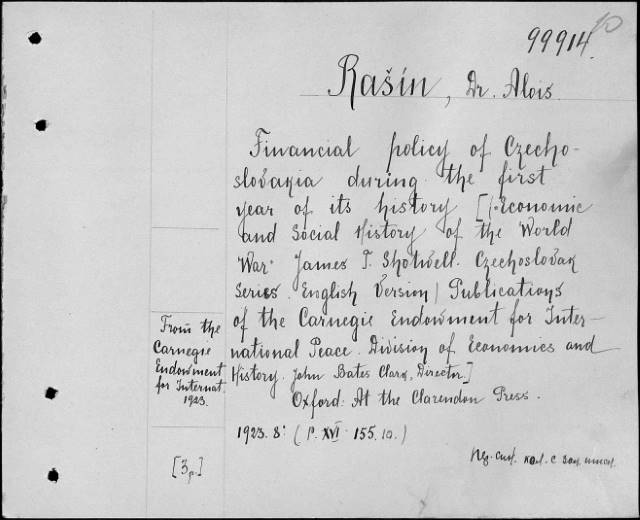 99914.
Rašín, Dr. Alois.
Financial policy of Czecho-
slovakia during the first
year of its history [/-Economic
and Social History of the World
War. James T. Shotwell. Czechoslovak
Series. English Version/ Publications
of the Carnegie Endowment for Inter-
national Peace. Division of Economics and
History. John Bates Clark, Director.]
Oxford: At the Clarendon Press.
1923. 8: (P. XVI 155. 1a.)
From the
Carnegie
Endowment
for Internat.
1923.
[3p.]